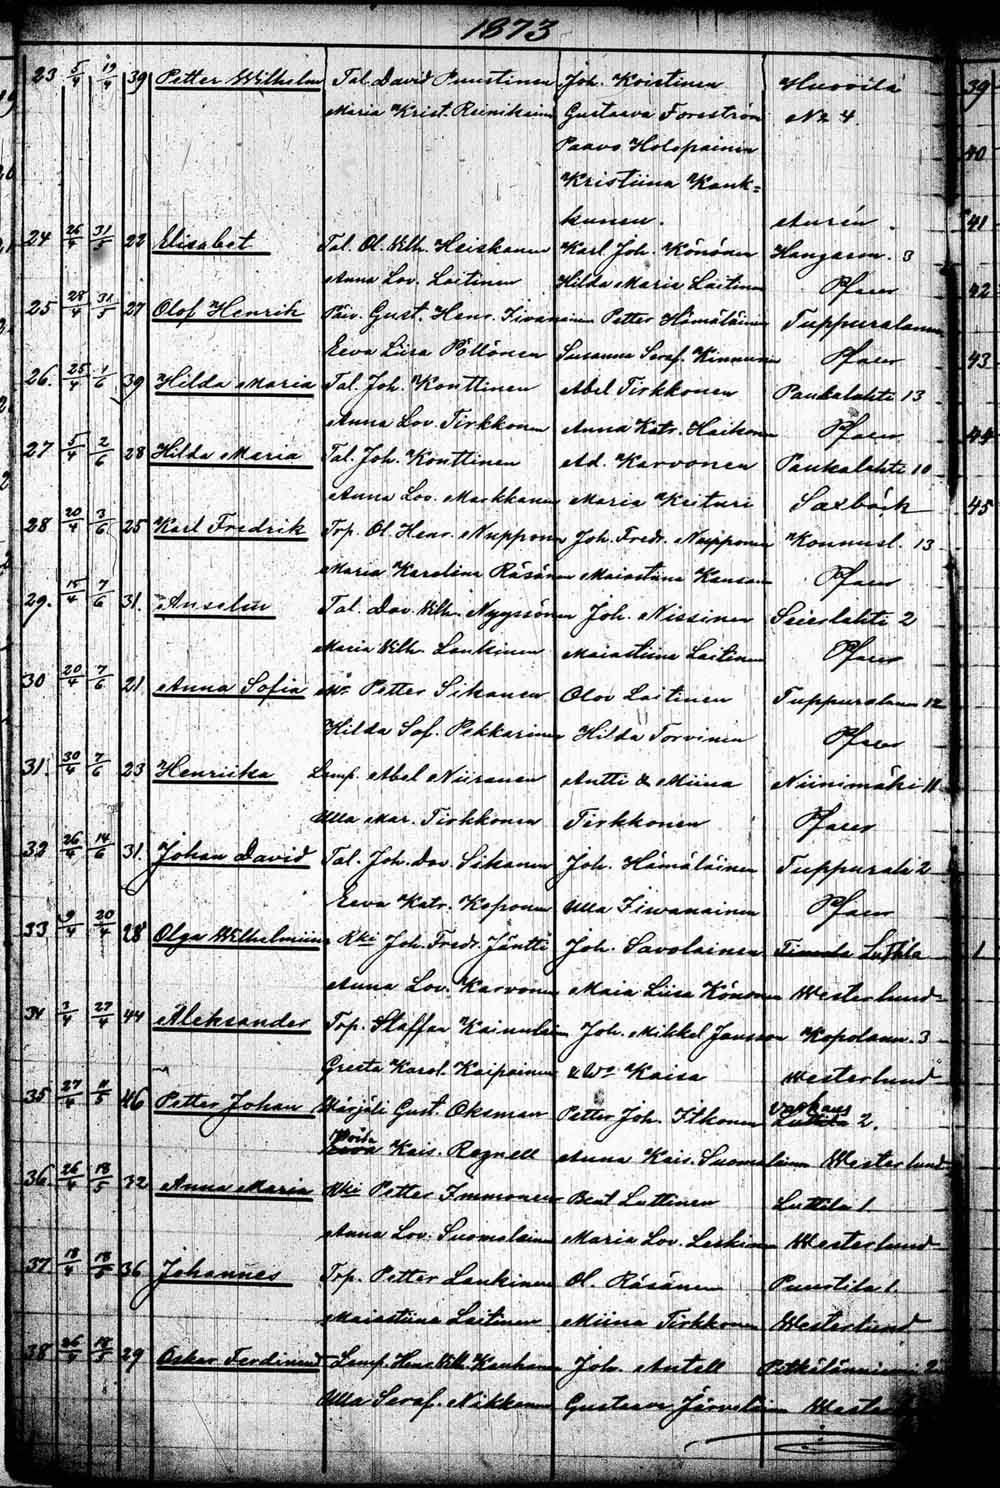 1873
23 5/4 19/4 39 Petter Wilhelm Tal. David Puustinen Joh. Koistinen Huovila
Maria Krist. Reinikain Gustaava Forsström No 4.
Paavo Holopainen
Kristiina Kauk=
kunen. Aurén
24 26/4 31/5 22 Elisabet Tal. Ol. Wilh. Heiskanen Karl Joh. Könönen Hangasm. 3
Anna Lov. Laitinen Hilda Maria Laitinen Pfaler
25 28/4 31/5 27 Olof Henrik Päiv. Gust. Henr. Iivanainen Petter Hämäläinen Tuppuralanm
Eeva Liisa Pöllönen Susanna Seraf. Kinnunen Pfaler
26. 25/4 1/6 39 Hilda Maria Tal. Joh. Konttinen Abel Tirkkonen Paukalahti 13
Anna Lov. Tirkkonen Anna Katr. Haikonen Pfaler
27 5/4 2/6 28 Hilda Maria Tal. Joh. Konttinen Ad. Karvonen Paukalahti 10
Anna Lov. Markkanen Maria Keituri Saxbäck
28 20/4 3/6 25 Karl Fredrik Torp. Ol. Henr. Nupponen Joh. Fredr. Nupponen Konnusl. 13
Maria Karolina Räsänen Maiastiina Kansan Pfaler
29. 15/4 7/6 31. Anselm Tal. Dav. Wilh. Nyyssönen Joh. Nissinen Saierlahti 2
Maria Wilh. Laukinen Maiastiina Laitinen Pfaler
30 20/4 7/6 21. Anna Sofia Petter Sikanen Olov Laitinen Tuppuralanm 12
Hilda Sof. Pekkarinen Hilda Torvinen Pfaler
31. 30/4 7/6 23 Henriika Lamp. Abel Niiranen Antti & Miina Niinimäki 11
Ulla Mar. Tirkkonen Tirkkonen Pfaler
32 26/4 14/6 31. Johan David Tal. Joh. Dav. Sikanen Joh. Hämäläinen Tuppurala 2
Eeva Katr. Koponen Ulla Iiwanainen Pfaler
33 9/4 20/4 28 Olga Wilhelmiina Rki Joh. Fredr. Jäntti Joh. Savolainen Timola Luttila
Anna Lov. Karvonen Maia Liisa Könönen Westerlund
34 3/4 27/4 44 Aleksander Torp. Staffan Kainulain Joh. Mikkel Jansson Kopolanm. 3
Greeta Karol. Kaipainen & Wo Kaisa Westerlund
35 27/4 11/5 46 Petter Johan Värjäli Gust. Oksman Petter Joh. Itkonen Varkaus Luttila 2.
Eeva Kais. Regnell Anna Kais. Suomalainen Westerlund
36. 26/4 18/5 32 Anna Maria Rki Petter Immonen Beat Luttinen Luttila 1.
Anna Lov. Suomalainen Maria Lov. Leskinen Westerlund
37. 18/4 18/5 36 Johannes Torp. Petter Laukinen Ol. Räsänen Puurtila 1.
Maiastiina Laitinen Miina Tirkkonen Westerlund
38 26/4 18/5 29 Oskar Ferdinand Lamp. Henr. Wilh. Kauhanen Joh. Antell Pitkälänniemi 2
Ulla Seraf. Nikkanen Gustaava Järveläinen
39
40
41
42
43
44
45
1